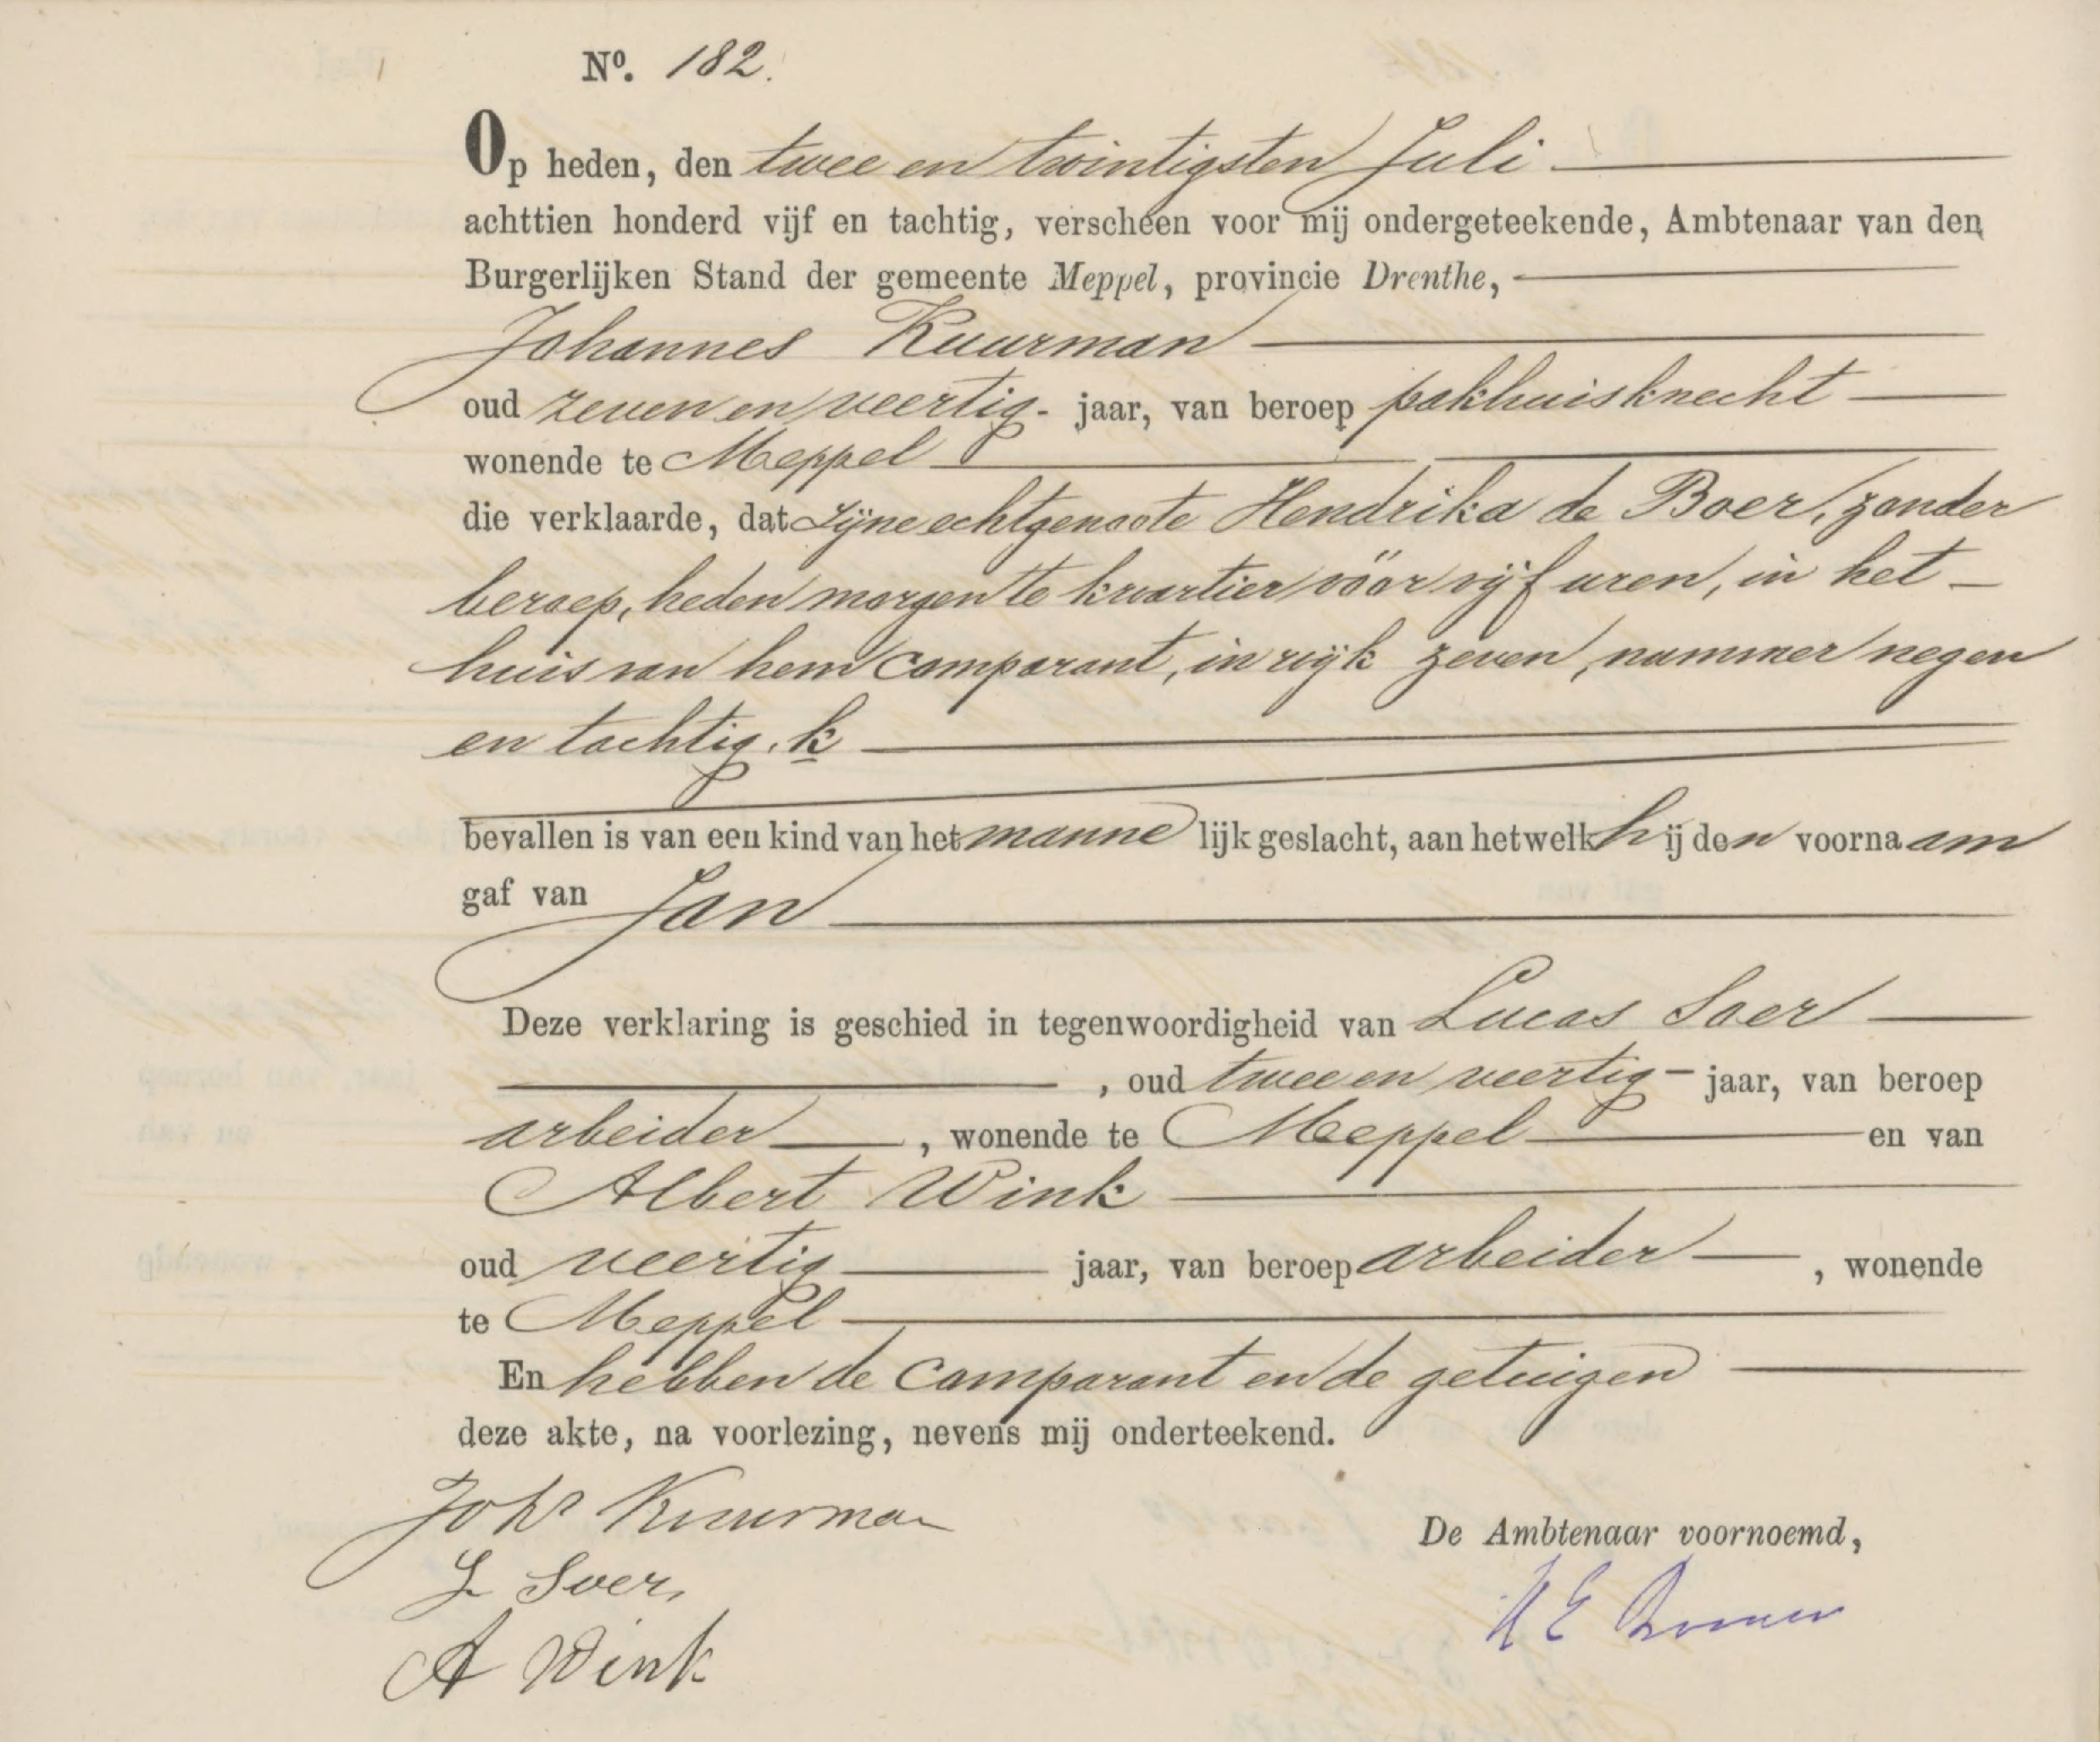 Nº. 182.
Op heden, den twee en twintigsten Juli
achttien honderd vijf en tachtig, verscheen voor mij ondergeteekende, Ambtenaar van den
Burgerlijken Stand der gemeente Meppel, provincie Drenthe,
Johannes Kuurman
oud zeven en veertig jaar, van beroep pakhuisknecht
wonende te Meppel
die verklaarde, dat zijne echtgenoote Hendrika de Boer, zonder
beroep, heden morgen te kwartier vóór vijf uren, in het
huis van hem comparant, in wijk zeven, nummer negen
en tachtig. k
bevallen is van een kind van het mannelijk geslacht, aan hetwelk hij den voornaam
gaf van Jan
Deze verklaring is geschied in tegenwoordigheid van Lucas Soer
, oud twee en veertig jaar, van beroep
arbeider, wonende te Meppel en van
Albert Wink
oud veertig jaar, van beroep arbeider, wonende
te Meppel
En hebben de comparant en de getuigen
deze akte, na voorlezing, nevens mij onderteekend.
Johs Kuurman
L Soer,
A Wink
De Ambtenaar voornoemd,